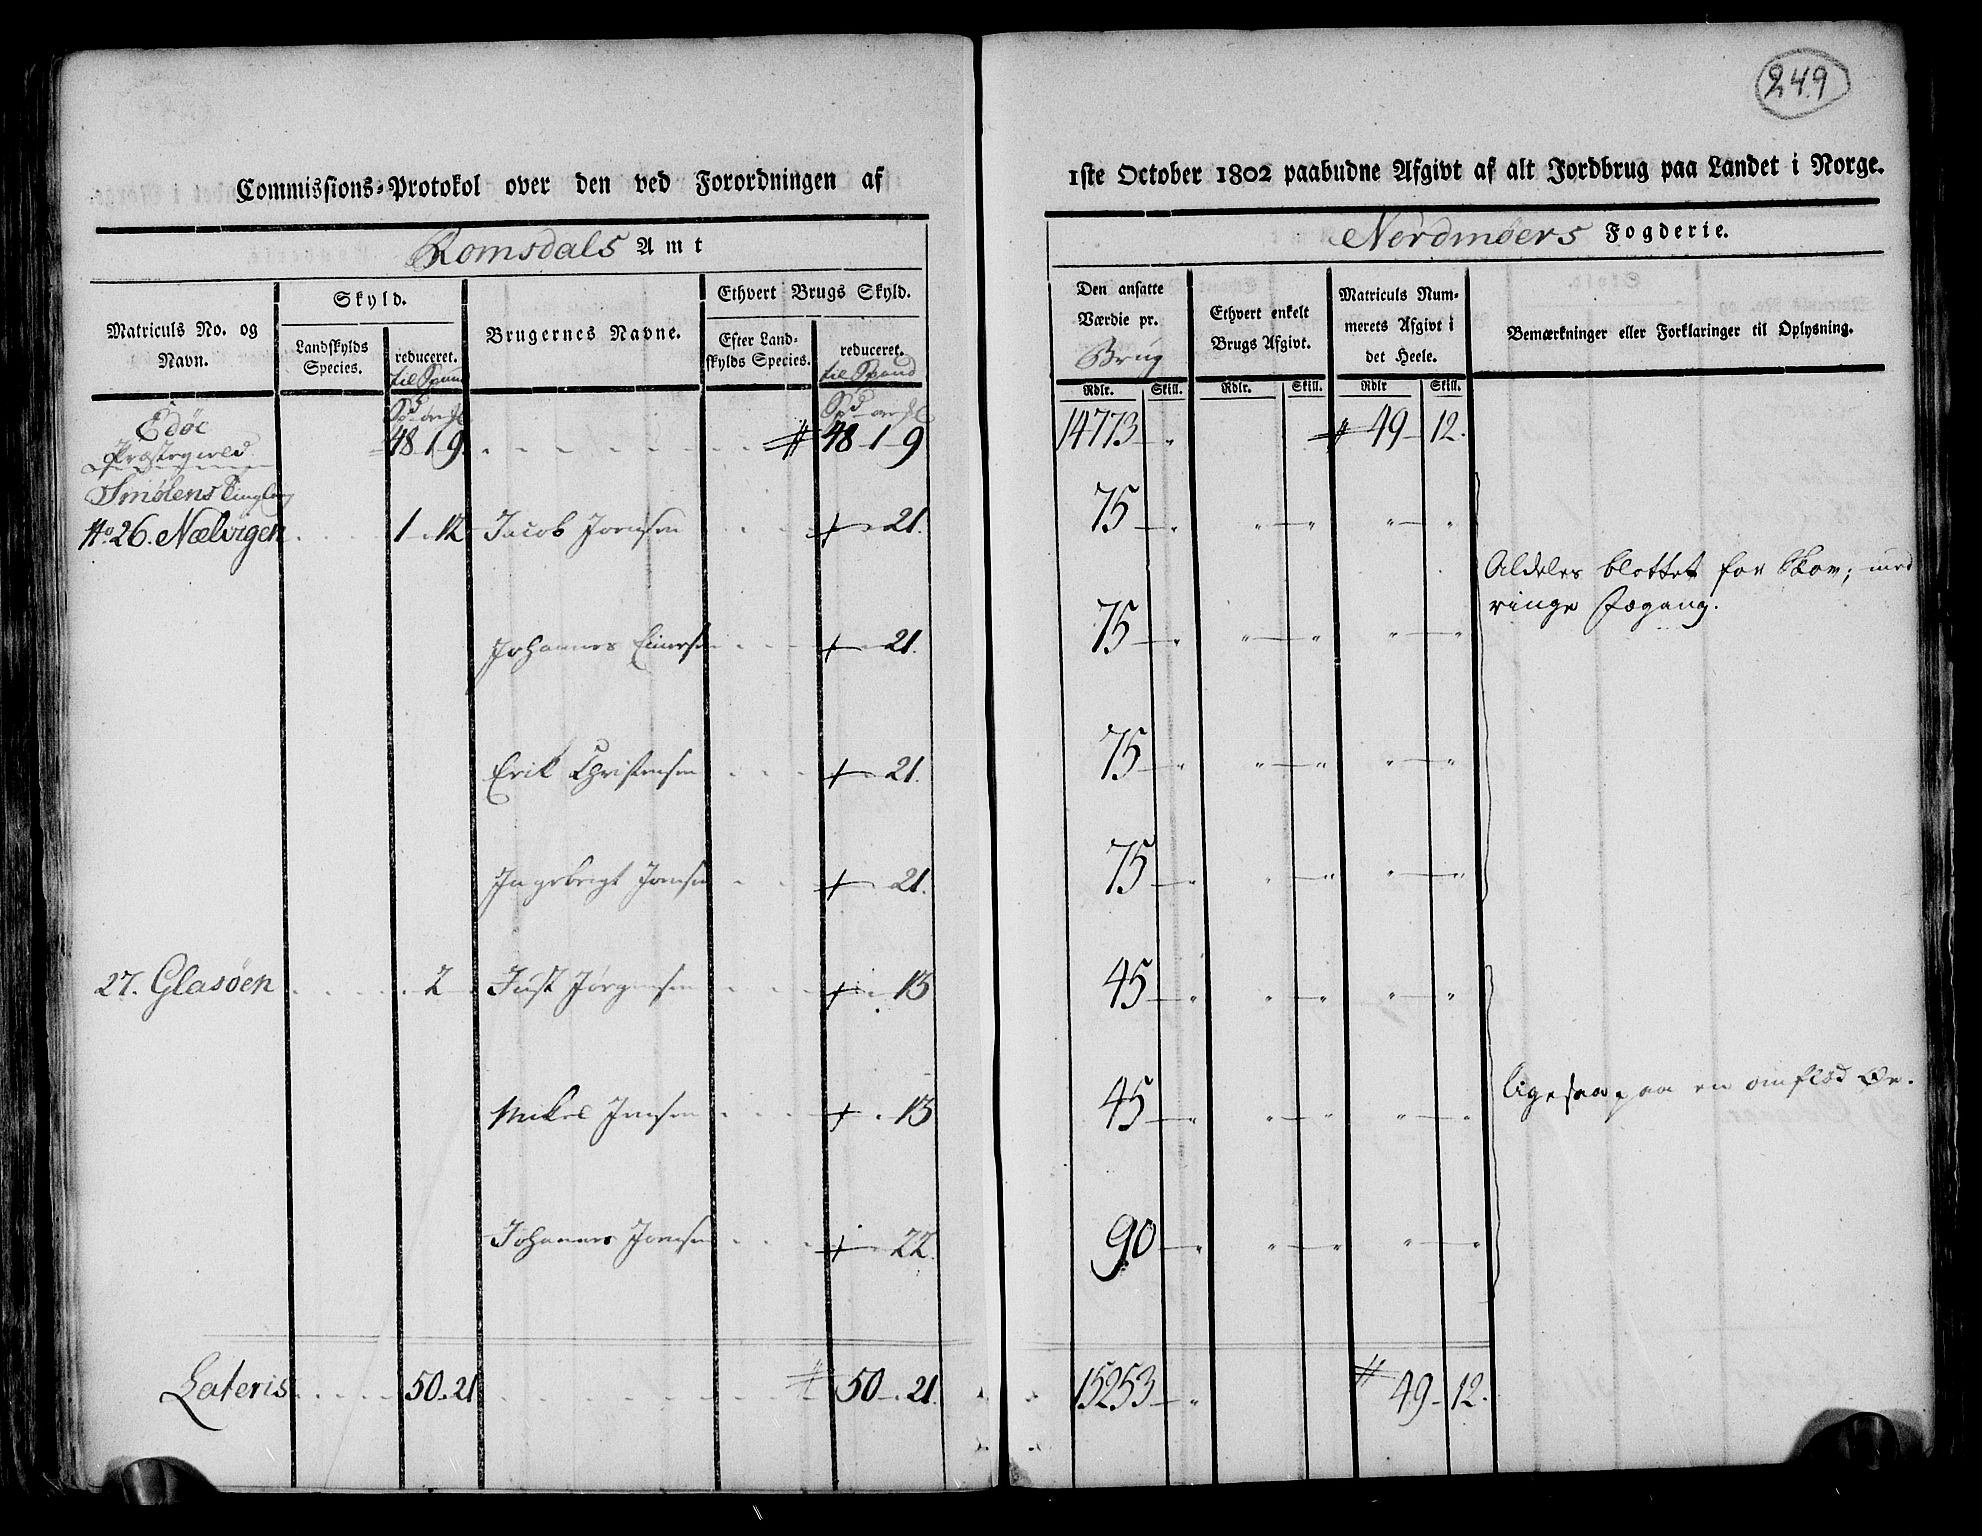 249
Commissions-Protokol over den ved Forordningen af 1ste October 1802 paabudne Afgivt af alt Jordbrug paa Landet i Norge.
Romsdals Amt
Nordmøers Fogderie.
Matriculs No. og Navn.
Skyld.
Landskylds Species.
reduceret.
til Spand
Brugernes Navne.
Ethvert Brugs Skyld.
Efter Landskylds Species.
reduceret.
til Spand
Den ansatte Værdie pr.
Brug
Rdlr. Skill.
Ethvert enkelt Brugs Afgivt.
Rdlr. Skill.
Matriculs Nummerets Afgivt i det Heele.
Rdlr Skill.
Bemærkninger eller Forklaringer til Oplysning.
Edøe
Præstegield 48 1 9 48 - 1 - 9 14773 - " 49 - 12.
Smølens Tinglaug
No 26. Nælvigen 1 - . 12 Jacob Joensen + 21. 75 - " " - " " - "
Aldeles blottet for Skov; med
ringe Fægang.
Johannes + 21. 75 - " " - " " - "
Erik Christensen + 21. 75 - " " - " " - "
Ingebrigt Joensen + 21. 75 - " " - " " - "
27. Glasøen 2 Just Jørgensen + 13 45 - " " - " " - "
ligesaa paa en omflød Øe.
Mikel Jensen + 13 45 - " " - " " - "
Johannes Joensen + 22. 90 - " " - " " - "
Lateris 50 . 21 50 - . 21. 15253 - " 49 - 12.